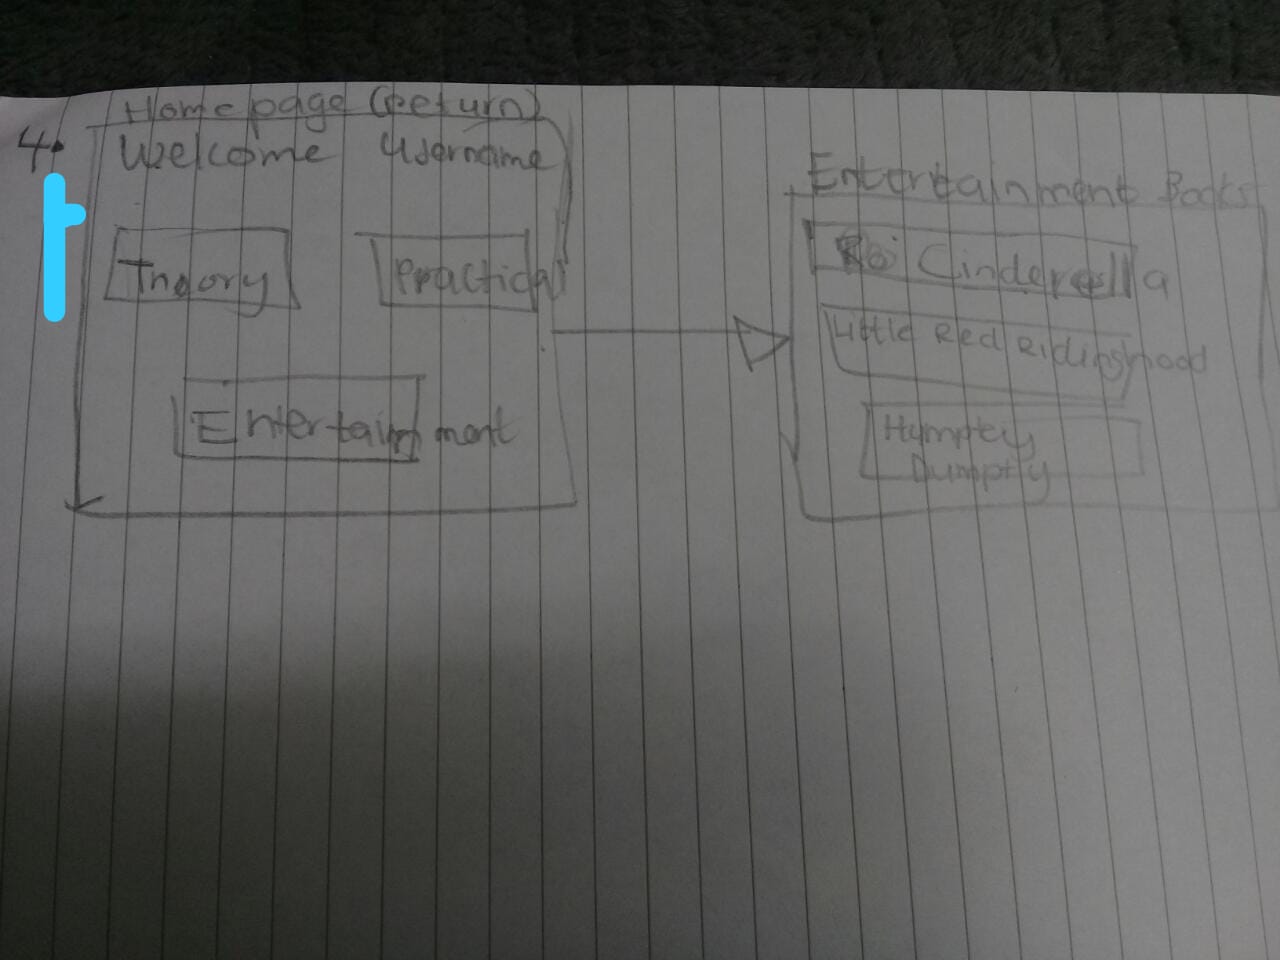 Homepage (Return)
4.
Welcome Username
Theory
Practical
Entertainment
Entertainment Books
Cinderella
Little Red Ridinghood
Humptey
Dumptly